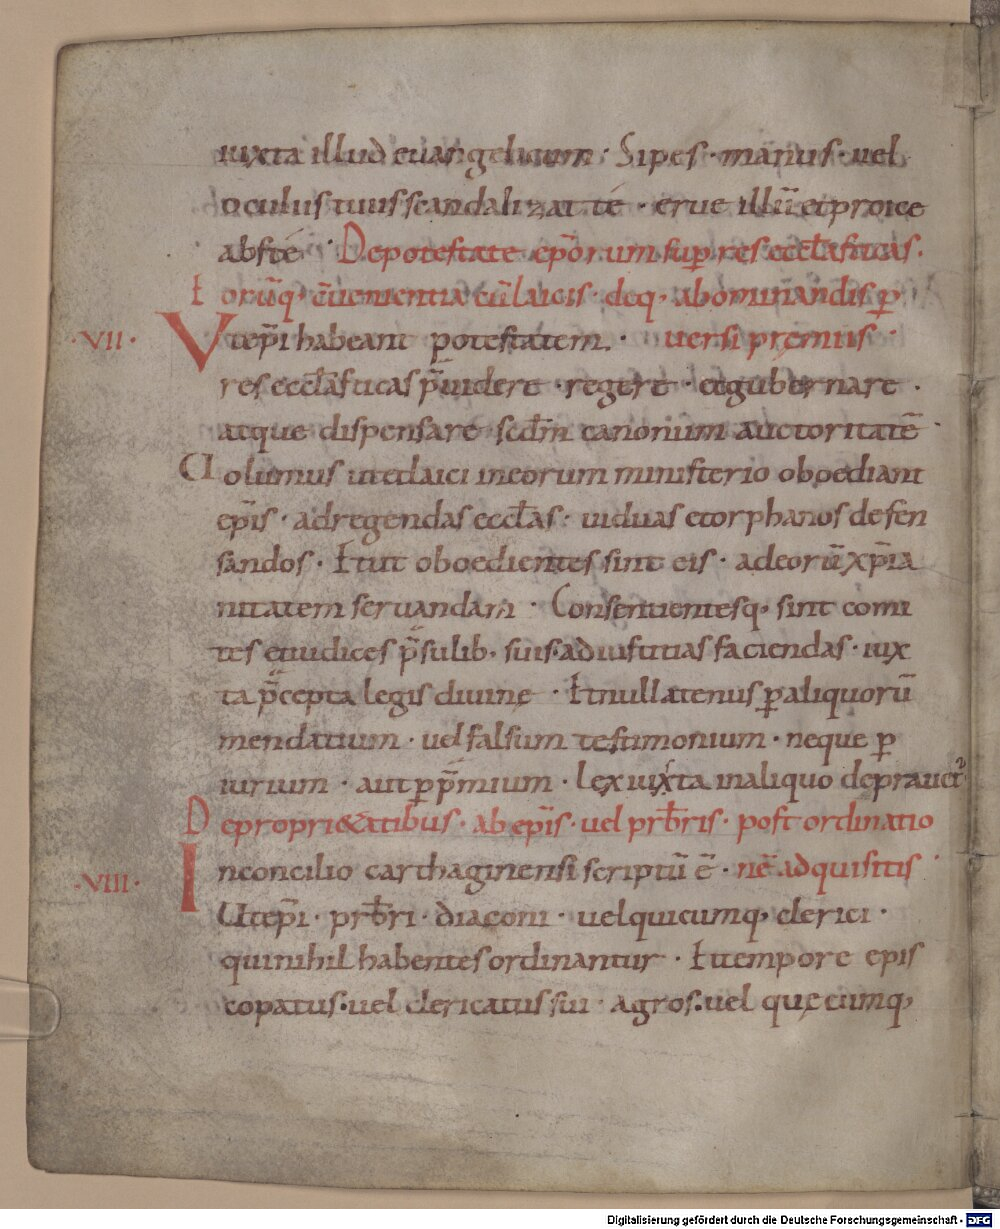 iuxta illud euangelicum · Si pes · manus · uel
oculus tuus scandalizat té · erue illū et proice
abs té · De potestate ep̄orum sup̱ res eccl̄asticas ·
Eorūq; c̄uenientia cū laicis · deq; abominandis p̱
·VII· Vt ep̄i habeant potestatem · uersi premiis ·
res eccl̄asticas p̄uidere · regere · et gubernare ·
atque dispensare · scd̄m canonum auctoritatē ·
Uolumus ut et laici in eorum ministerio oboediant
ep̄is · ad regendas eccl̄as · uiduas et orphanos defen
sandos · Et ut oboedientes sint eis · ad eorū xp̄ia
nitatem seruandam · Consentientesq; sint comi
tes et iudices p̄sulib; suis ad iustitias faciendas · iux
ta p̄cepta legis diuinę · Et nullatenus p̱ aliquorū
mendatium · uel falsum testimonium · neque p̱
iurium · aut p̱ p̄mium · lex iuxta in aliquo deprauet᷑
De proprietatibus · ab ep̄is · uel prb̄ris · post ordinatio
·VIII· In concilio carthaginensi scriptū ē · nē adquisitis ·
Ut ep̄i · prb̄ri · diaconi · uel quicumq; clerici ·
qui nihil habentes ordinantur · Et tempore epis
copatus · uel clericatus sui · agros · uel quęcumq;
Digitalisierung gefördert durch die Deutsche Forschungsgemeinschaft - DFG